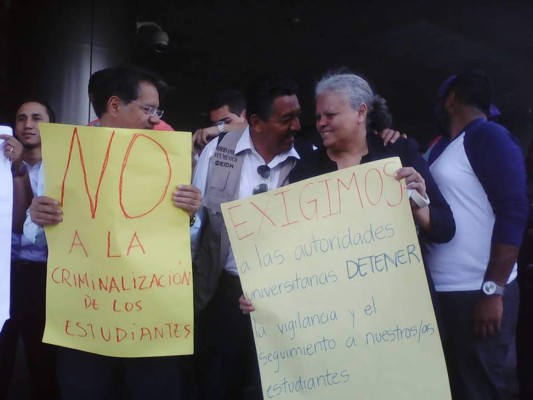 NO
A LA
CRIMINALIZACIÓN
DE LOS
ESTUDIANTES
EXIGIMOS
a las autoridades
universitarias DETENER
la vigilancia y el
seguimiento a nuestros/as
estudiantes